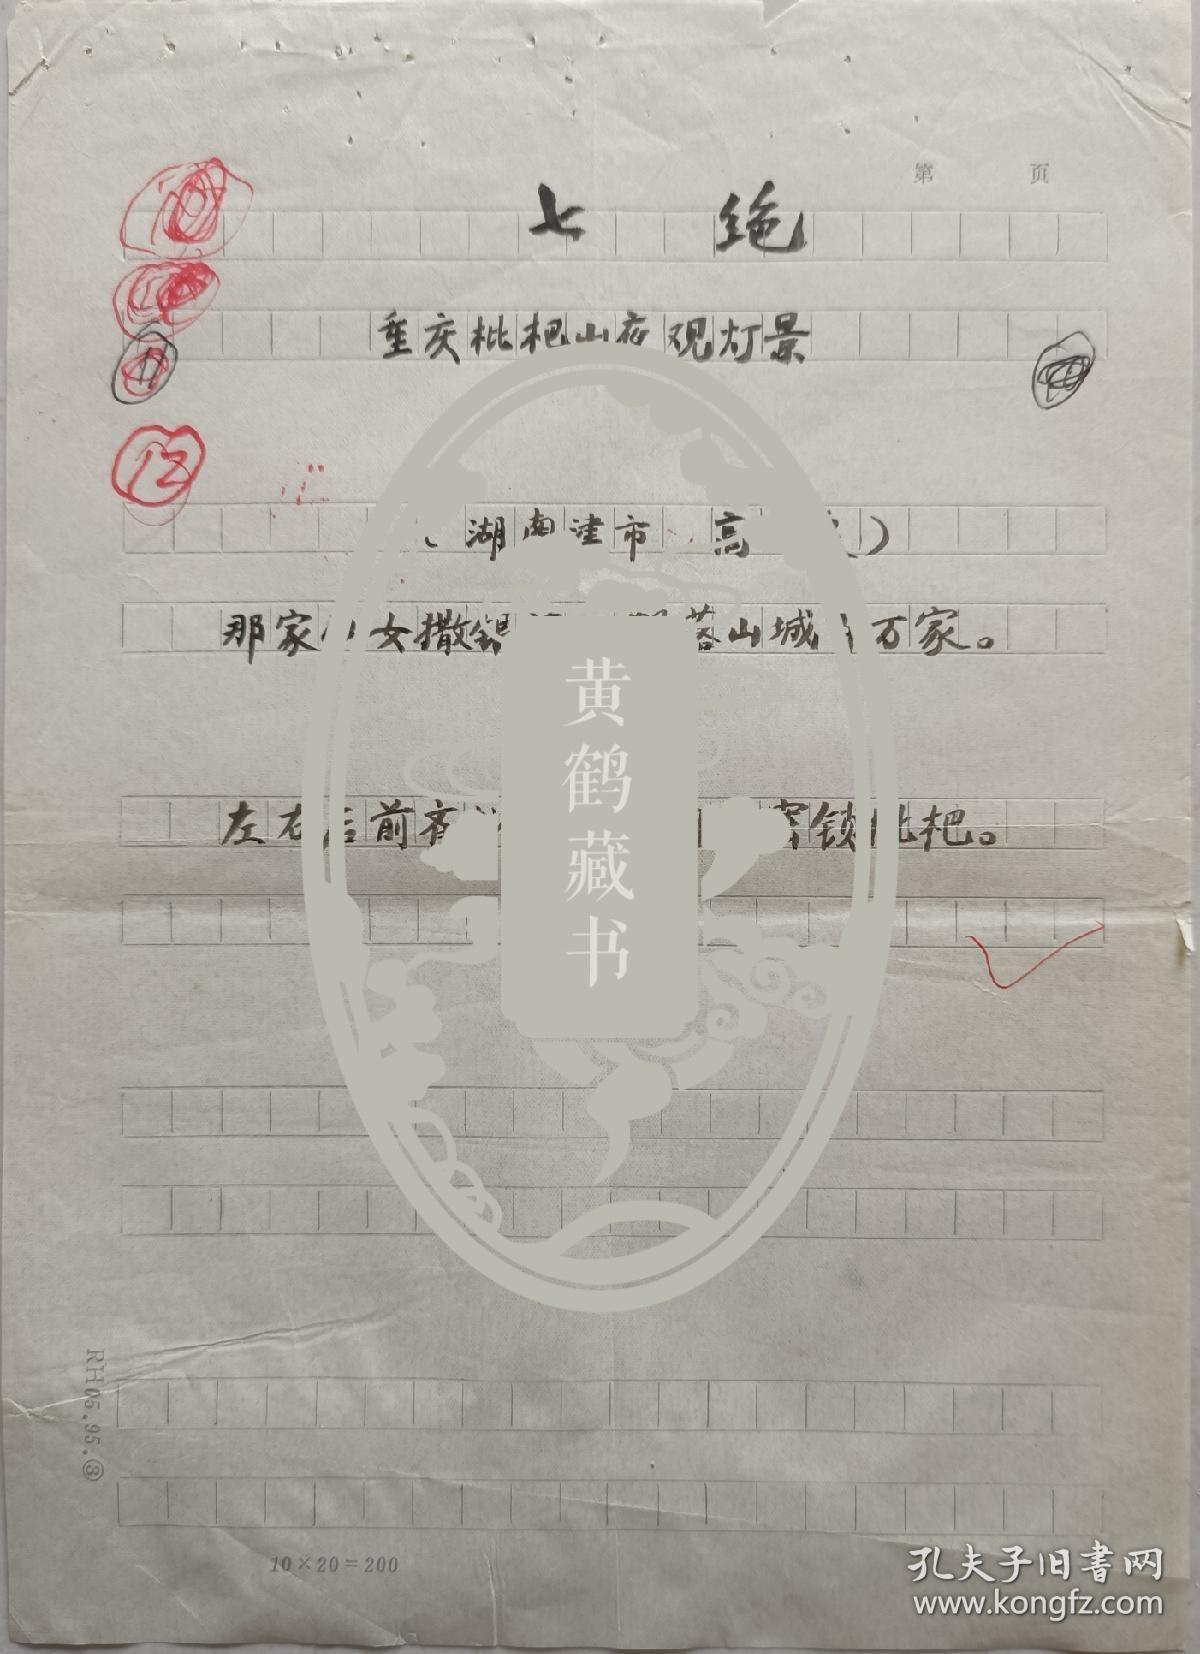 第 页
七 绝
重庆枇杷山夜观灯景
12
11
(湖南津市 高 )
那家 女撒银 落山城 万家。
左右后前齐 密锁枇杷。
黄鹤藏书
RH05.95.⑧
10×20=200
孔夫子旧书网
www.kongfz.com